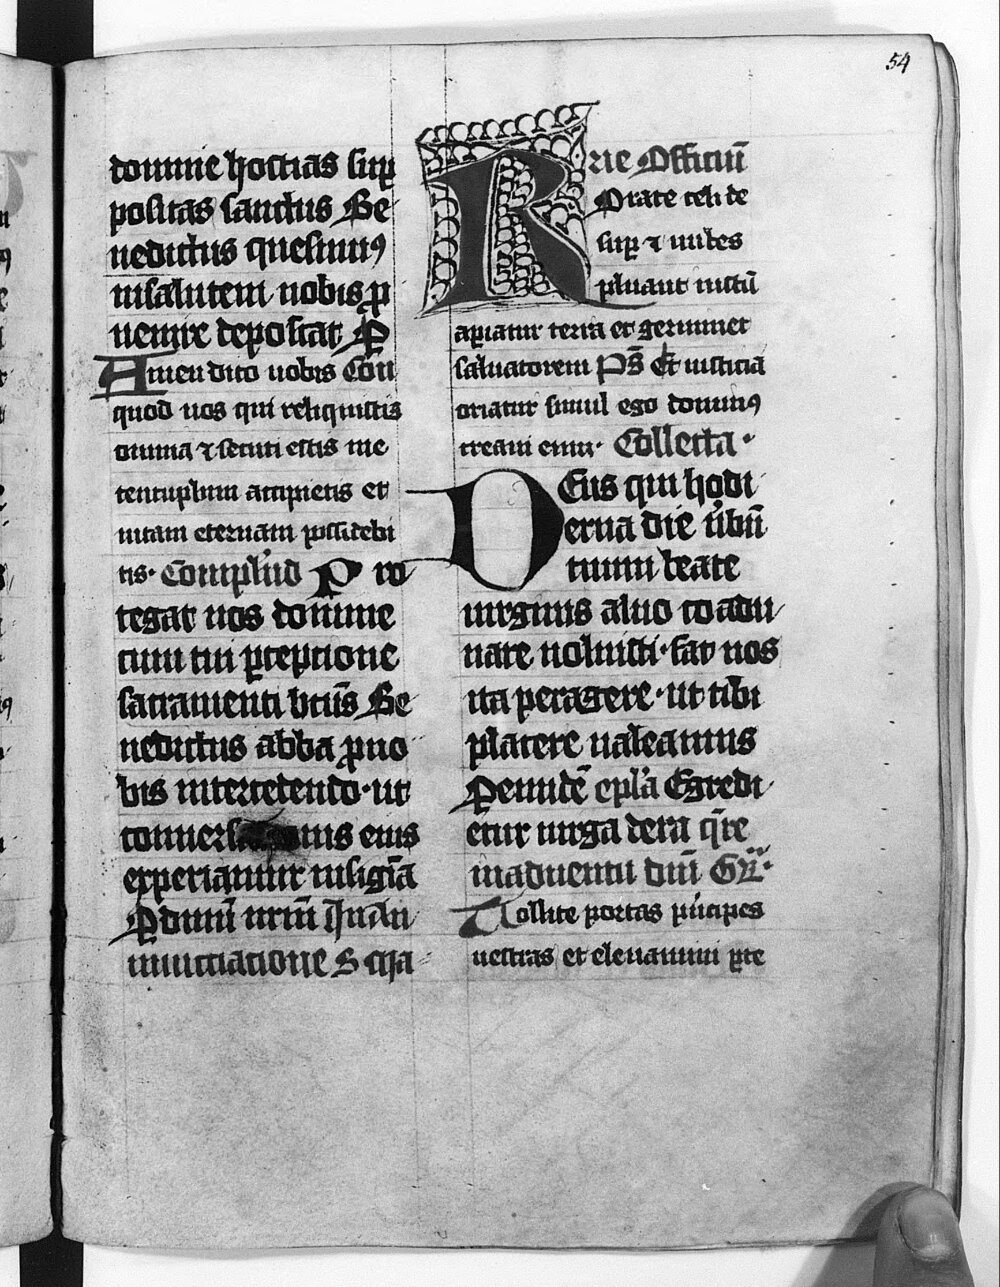 54
domine hostias sup
positas sanctus Be
nedictus quesum9
in salutem nobis p
uenire deposcat P
Amen dico uobis Com
quod uos qui reliquistis
omnia ⁊ secuti estis me
centuplum accipietis et
uitam eternam possidebi
tis. Complend Pro
tegat nos domine
cum tui perceptione
sacramenti btus Be
nedictus abba pno
bis intercedendo. ut
et
eius
experiamur insignia
P dnum nrm In an
nunctiatione S cta
rie Officiu
Rorate celi de
sup ⁊ nubes
pluant iustu
apiatur terra et germinet
saluatorem Ps Et iusticia
oriatur simul ego domin9
creaui eum. Collecta.
DEus qui hodi
erna die ubu
tuum beate
uirginis aluo coadu
nare uoluisti. fac nos
ita peragere. ut tibi
placere ualeamus
P eunde epla Egredi
etur uirga de ra qre
in aduentu dni Gr.
Tollite portas pncipes
uestras et eleuamini pte